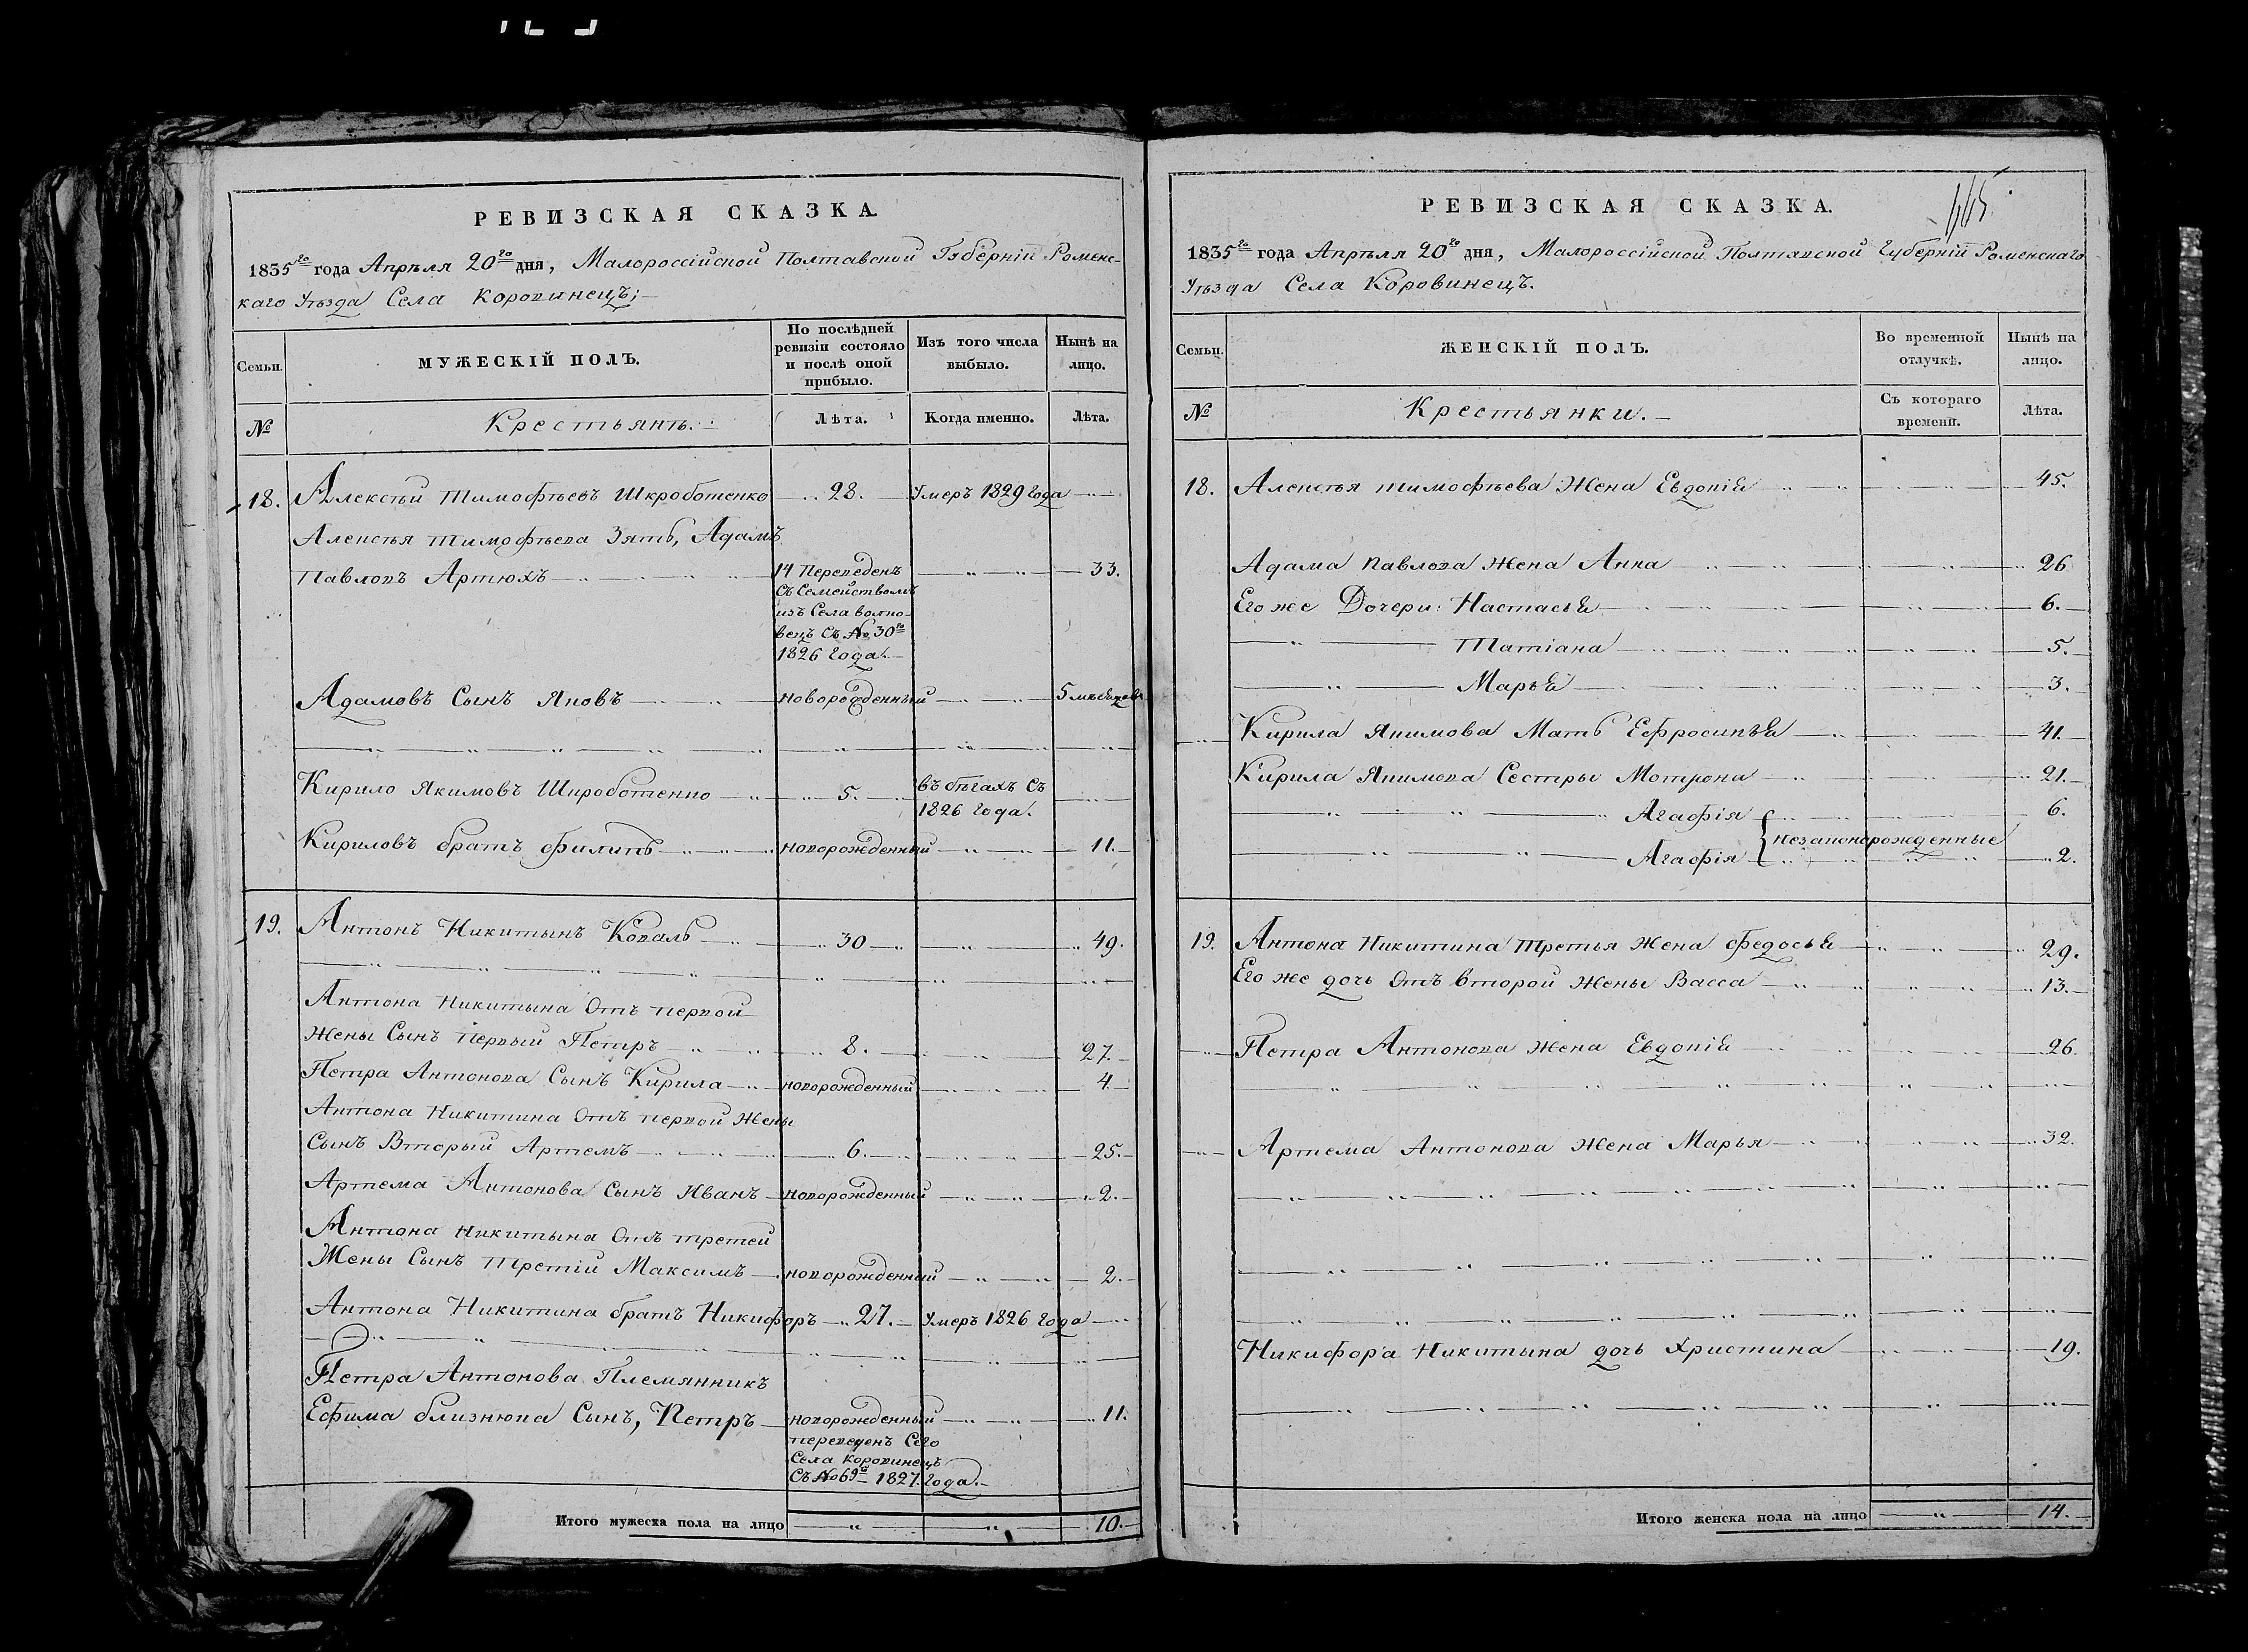 РЕВИЗСКАЯ СКАЗКА.
1835го года Апрѣля 20го дня, Малороссійской Полтавской Губерніи Роменс-
каго Уѣзда Села Коровинецъ;
Семьи.
МУЖЕСКІЙ ПОЛЪ.
По послѣдней ревизіи состояло и послѣ оной прибыло.
Изъ того числа выбыло.
Нынѣ на лицо.
№
Крестьянъ.
Лѣта.
Когда именно.
Лѣта.
18. Алексѣй Тимофѣевъ Шкроботенко 28. Умеръ 1829 года
Алексѣя Тимофѣева Зять, Адамъ
Павловъ Артюхъ 14 Переведенъ 33.
Съ Семействомъ
изъ Села
венъ Съ № 30го
1826 года.
Адамовъ Сынъ Яковъ новорожденный 5 мѣсяцовъ
Кирило Якимовъ Шкроботенко 5. въ бѣгахъ Съ
1826 года.
Кириловъ братъ Филипъ новорожденный 11.
19. Антонъ Никитынъ Коваль 30 49.
Антона Никитына Отъ первой
Жены Сынъ первый Петръ 8. 27.
Петра Антонова Сынъ Кирила новорожденный 4
Антона Никитина Отъ первой Жены
Сынъ Вторый Артемъ 6. 25.
Артема Антонова Сынъ Иванъ новорожденный 2.
Антона Никитына Отъ третей
Жены Сынъ Третій Максимъ новорожденный 2.
Антона Никитина братъ Никифоръ 27. Умеръ 1826 года
Петра Антонова Племянникъ
Ефима близнюка Сынъ, Петръ новорожденный 11.
переведенъ Сего
Села Коровинецъ
Съ № 69го 1827 года.
Итого мужеска пола на лицо 10.
РЕВИЗСКАЯ СКАЗКА.
1835го года Апрѣля 20го дня, Малороссійской Полтавской Губерніи Роменскаго
Уѣзда Села Коровинецъ.
Семьи.
ЖЕНСКІЙ ПОЛЪ.
Во временной отлучкѣ.
Нынѣ на лицо.
№
Крестьянки.
Съ котораго времени.
Лѣта.
18. Алексѣя Тимофѣева Жена Евдокія 45.
Адама Павлова Жена Анна 26
Его же Дочери: Настасья 6.
Татіана 5.
Марья 3.
Кирила Якимова Мать Ефросинья 41.
Кирила Якимова Сестры Мотрона 21.
Агафія 6.
незаконорожденные
Агафія 2.
19. Антона Никитина третья Жена Федосья 29.
Его же дочь Отъ второй Жены Васса 13.
Петра Антонова Жена Евдокія 26.
Артема Антонова Жена Марья 32.
Никифора Никитына дочь Христина 19.
Итого женска пола на лицо 14.